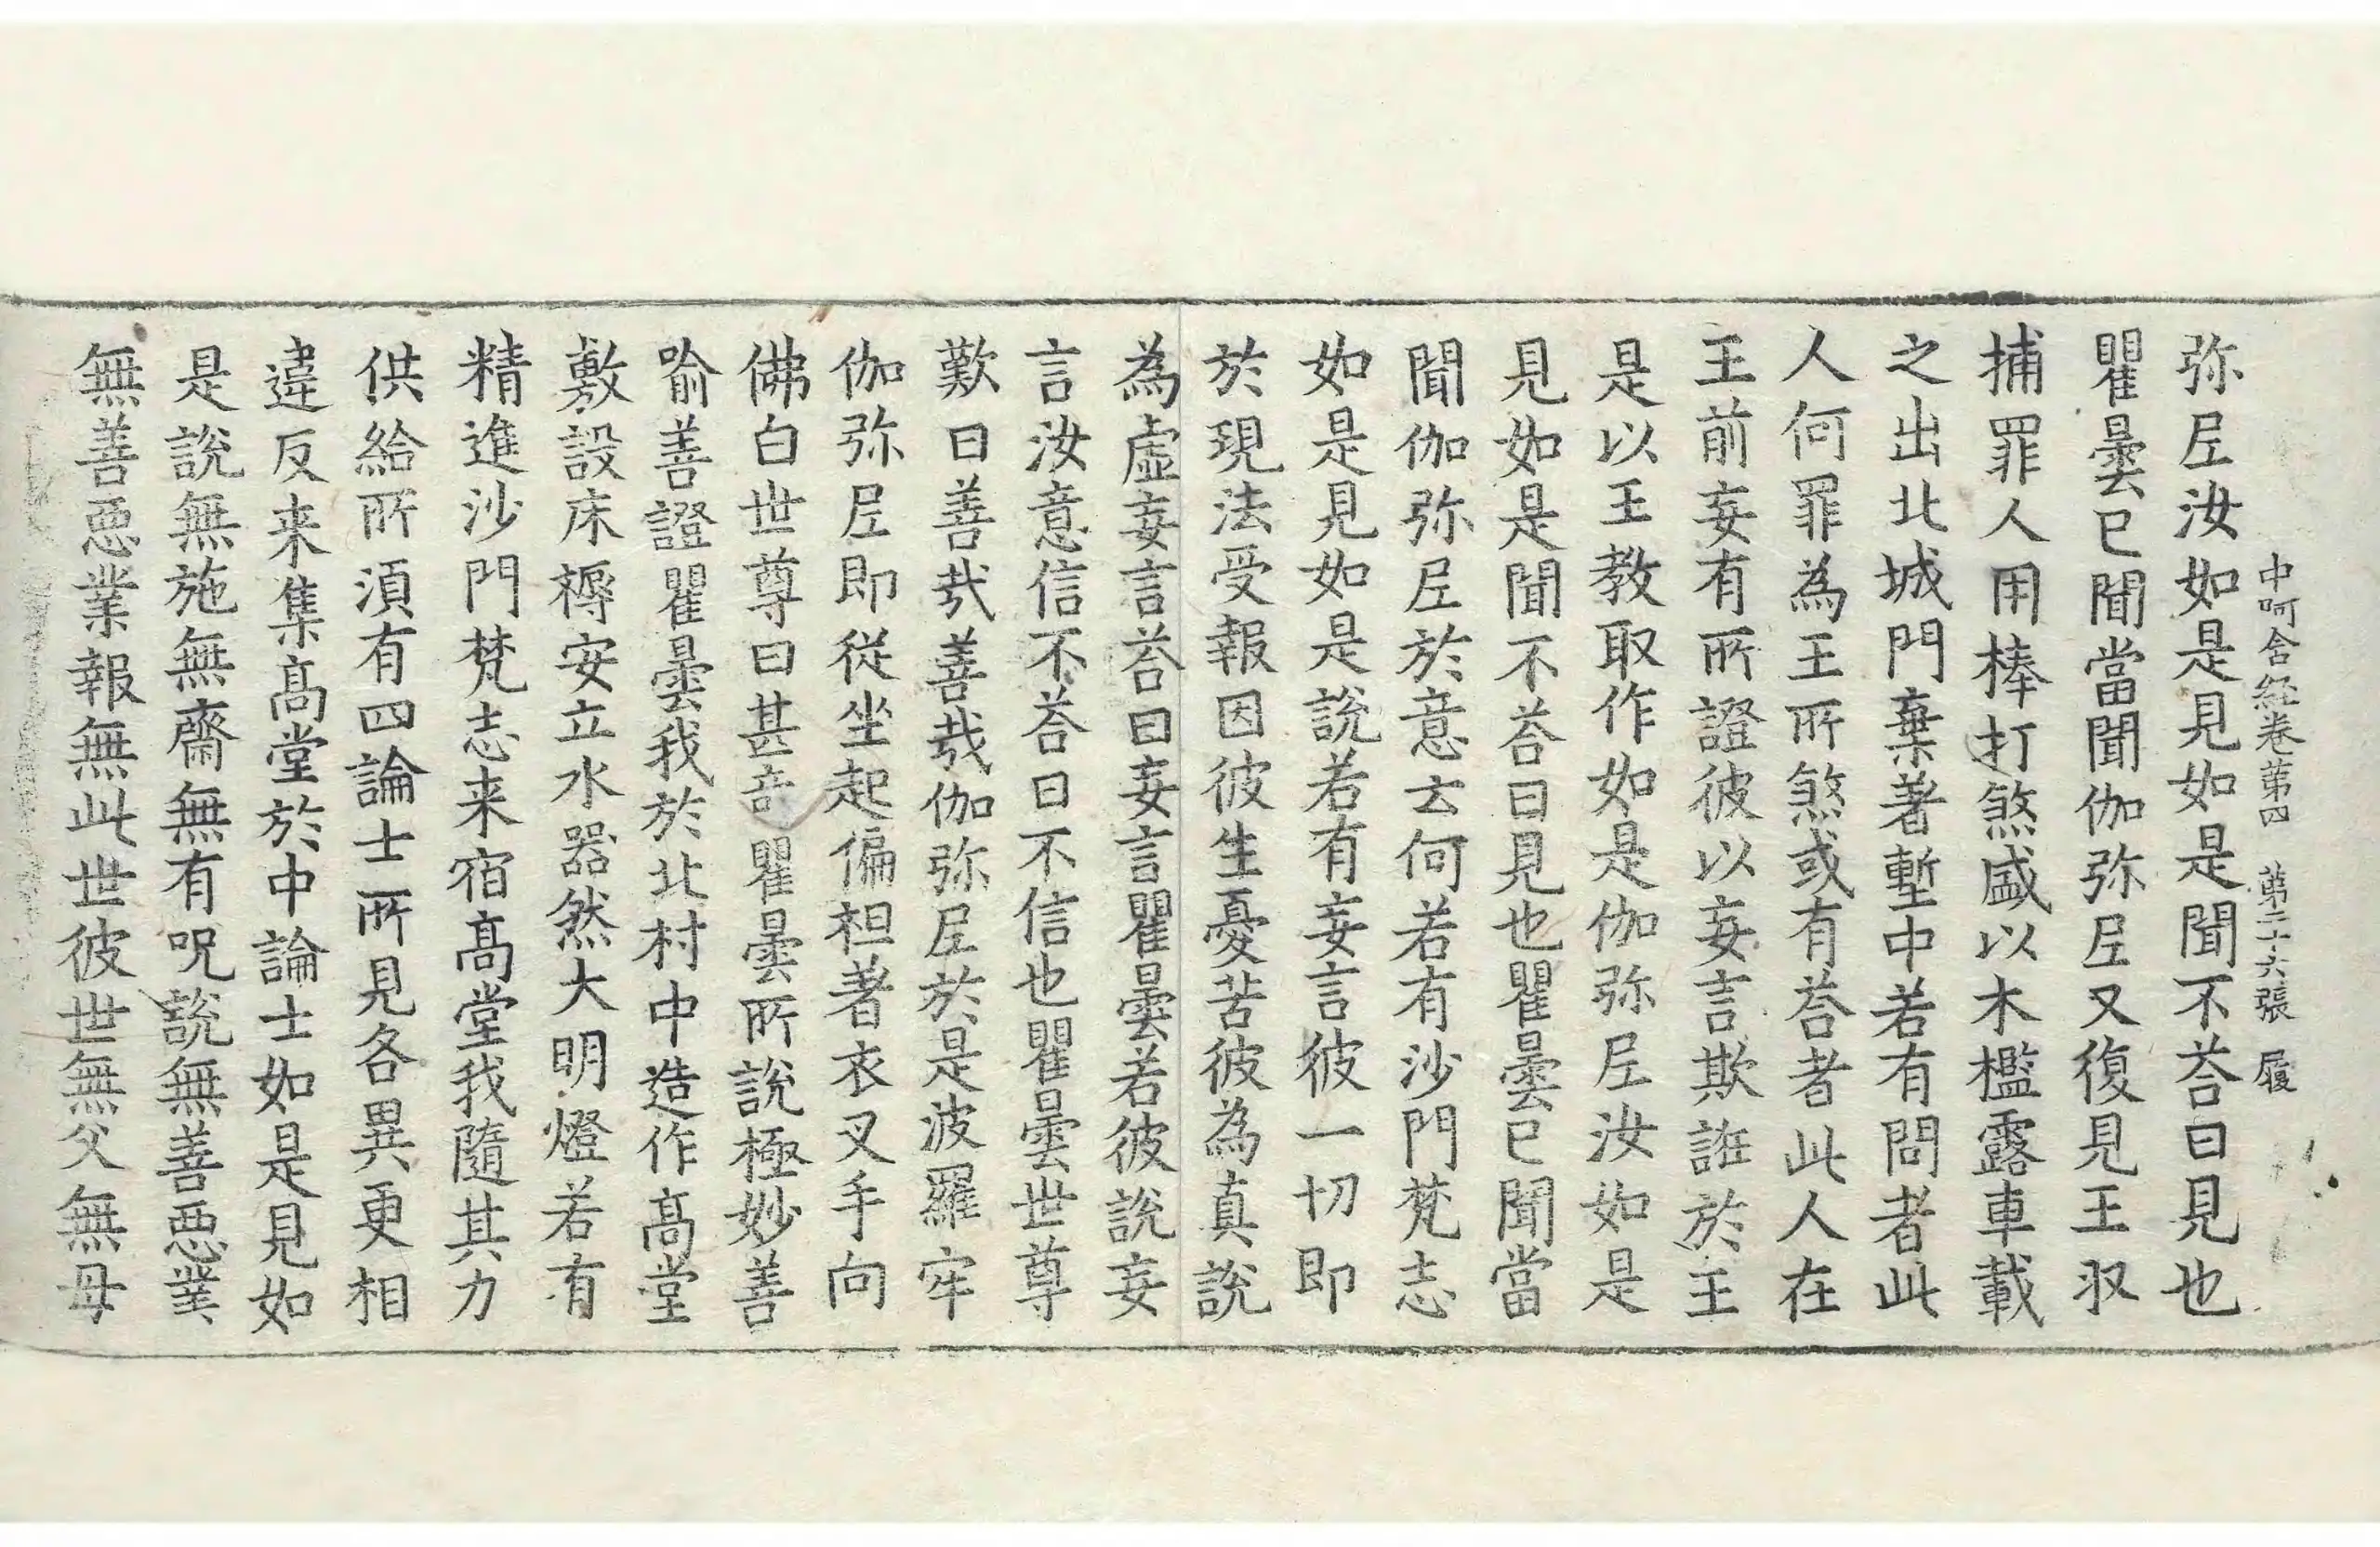 中呵含經卷苐四 苐二十六張 履
弥𡰱汝如是見如是聞不荅曰見也
瞿曇已聞當聞伽弥𡰱又復見王収
捕罪人用棒打煞盛以木檻露車載
之出北城門棄著塹中若有問者此
人何罪為王所煞或有荅者此人在
王前妄有所證彼以妄言欺誑於王
是以王教取作如是伽弥𡰱汝如是
見如是聞不荅曰見也瞿曇已聞當
聞伽弥𡰱於意云何若有沙門梵志
如是見如是說若有妄言彼一切即
於現法受報因彼生憂苦彼為真說
為虛妄言荅曰妄言瞿曇若彼說妄
言汝意信不荅曰不信也瞿曇世尊
歎曰善㢤善㢤伽弥𡰱於是波羅牢
伽弥𡰱即從坐起偏袒著衣叉手向
佛白世尊曰甚奇瞿曇所說極妙善
喻善證瞿曇我於北村中造作髙堂
敷設床褥安立水器然大明燈若有
精進沙門梵志来宿髙堂我隨其力
供給所湏有四論士所見各異更相
違反来集髙堂於中論士如是見如
是說無施無齋無有呪說無善惡業
無善惡業報無此世彼世無父無母